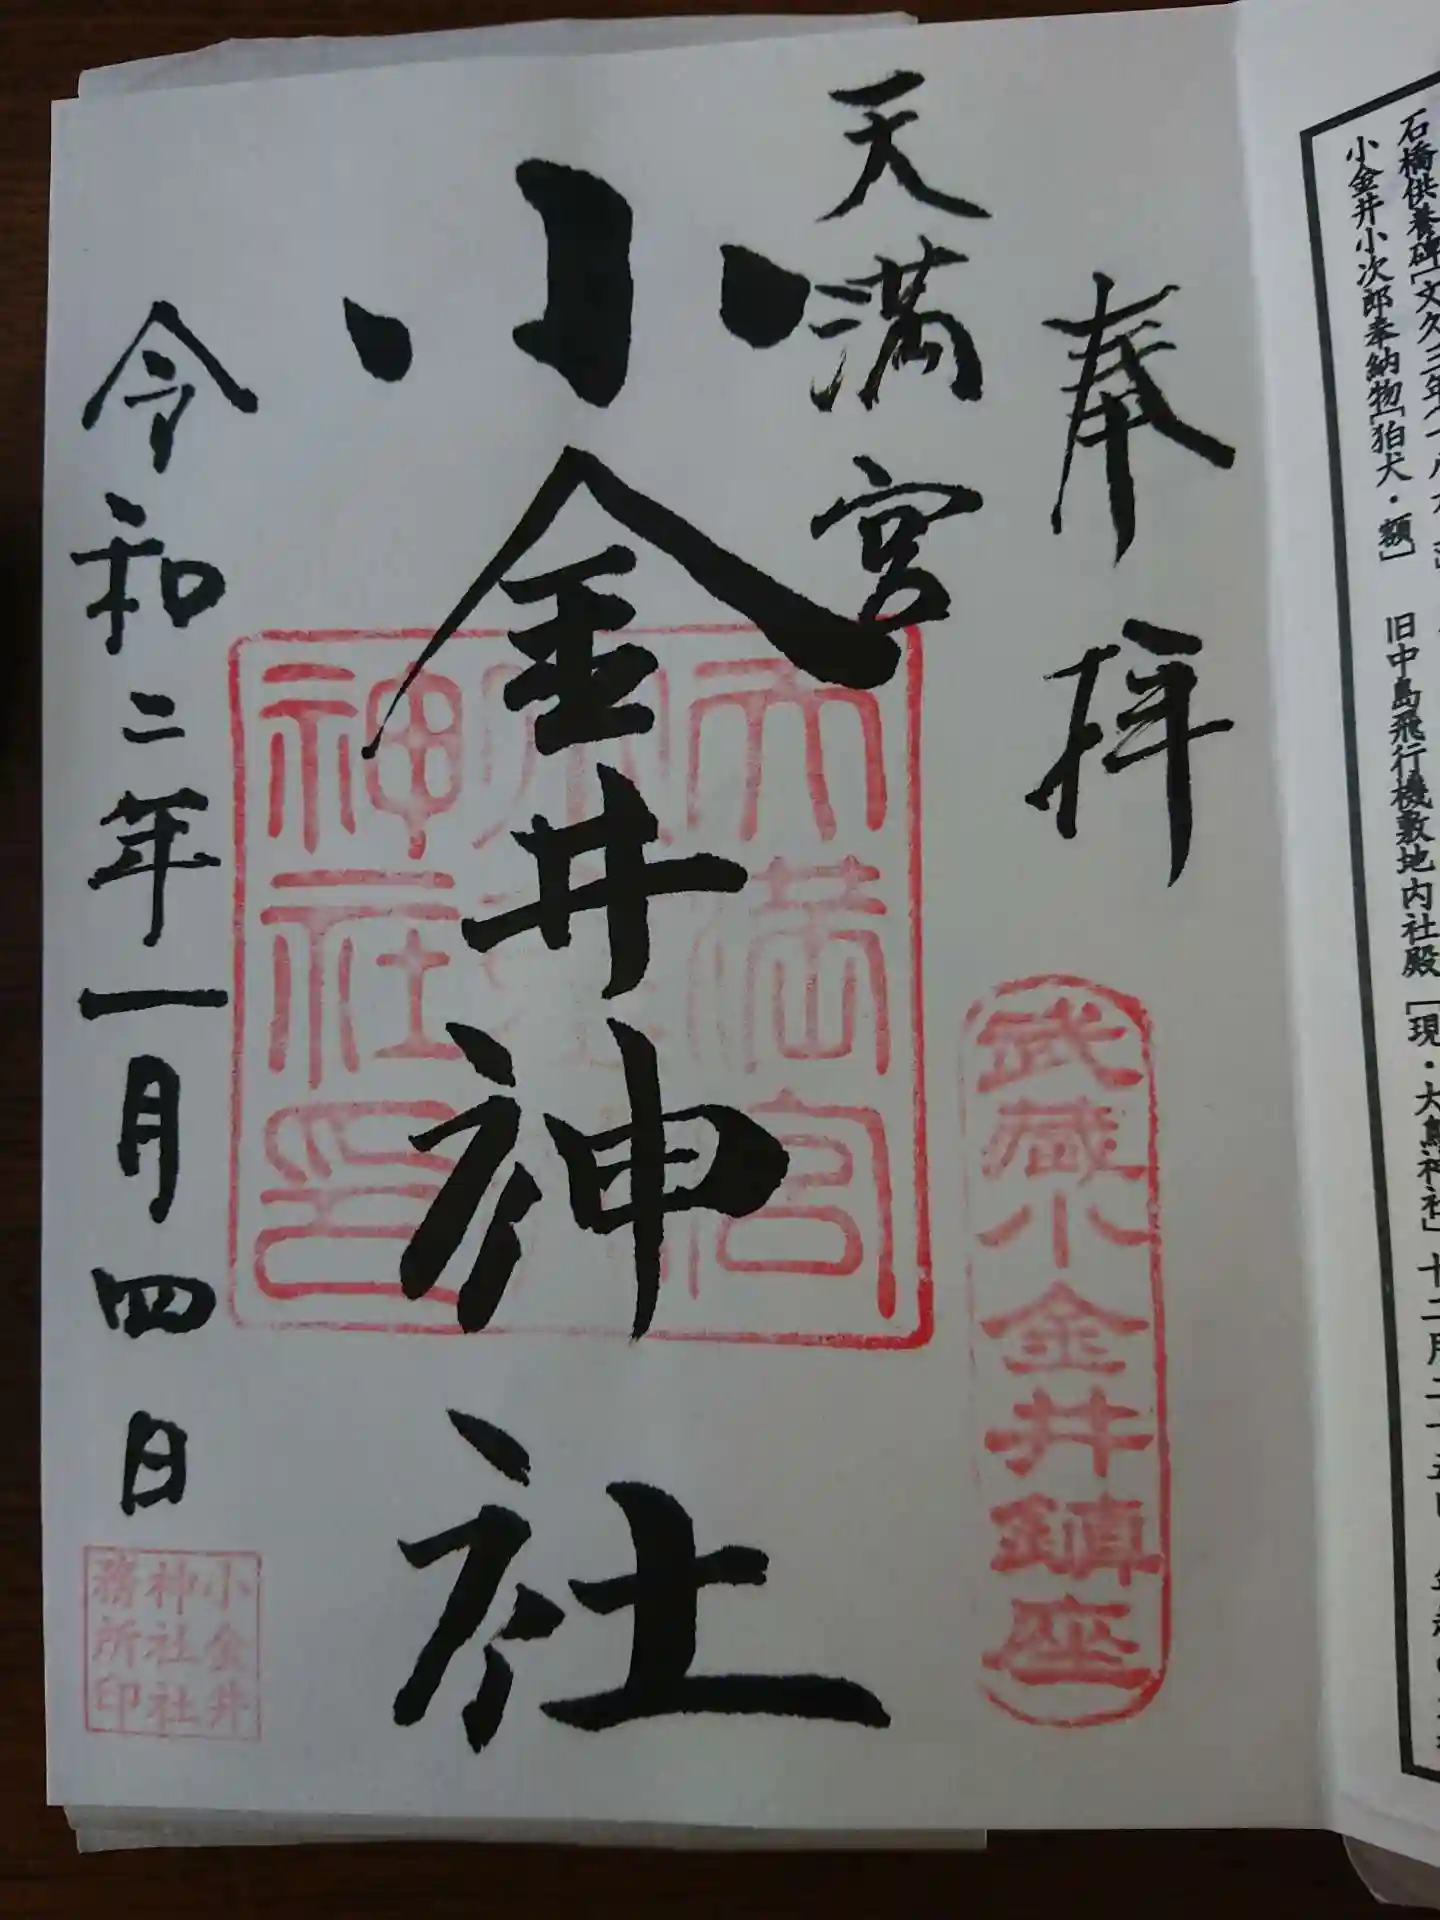 石橋供養碑[文久三年
小金井小次郎奉納物[狛犬・額]　旧中島飛行機敷地内社殿[現・大鷲神社]十二月二十五日
奉拝
天満宮
小金井神社
令和二年一月四日
武蔵小金井鎮座
天満宮
小金井
神社印
小金井
神社社
務所印